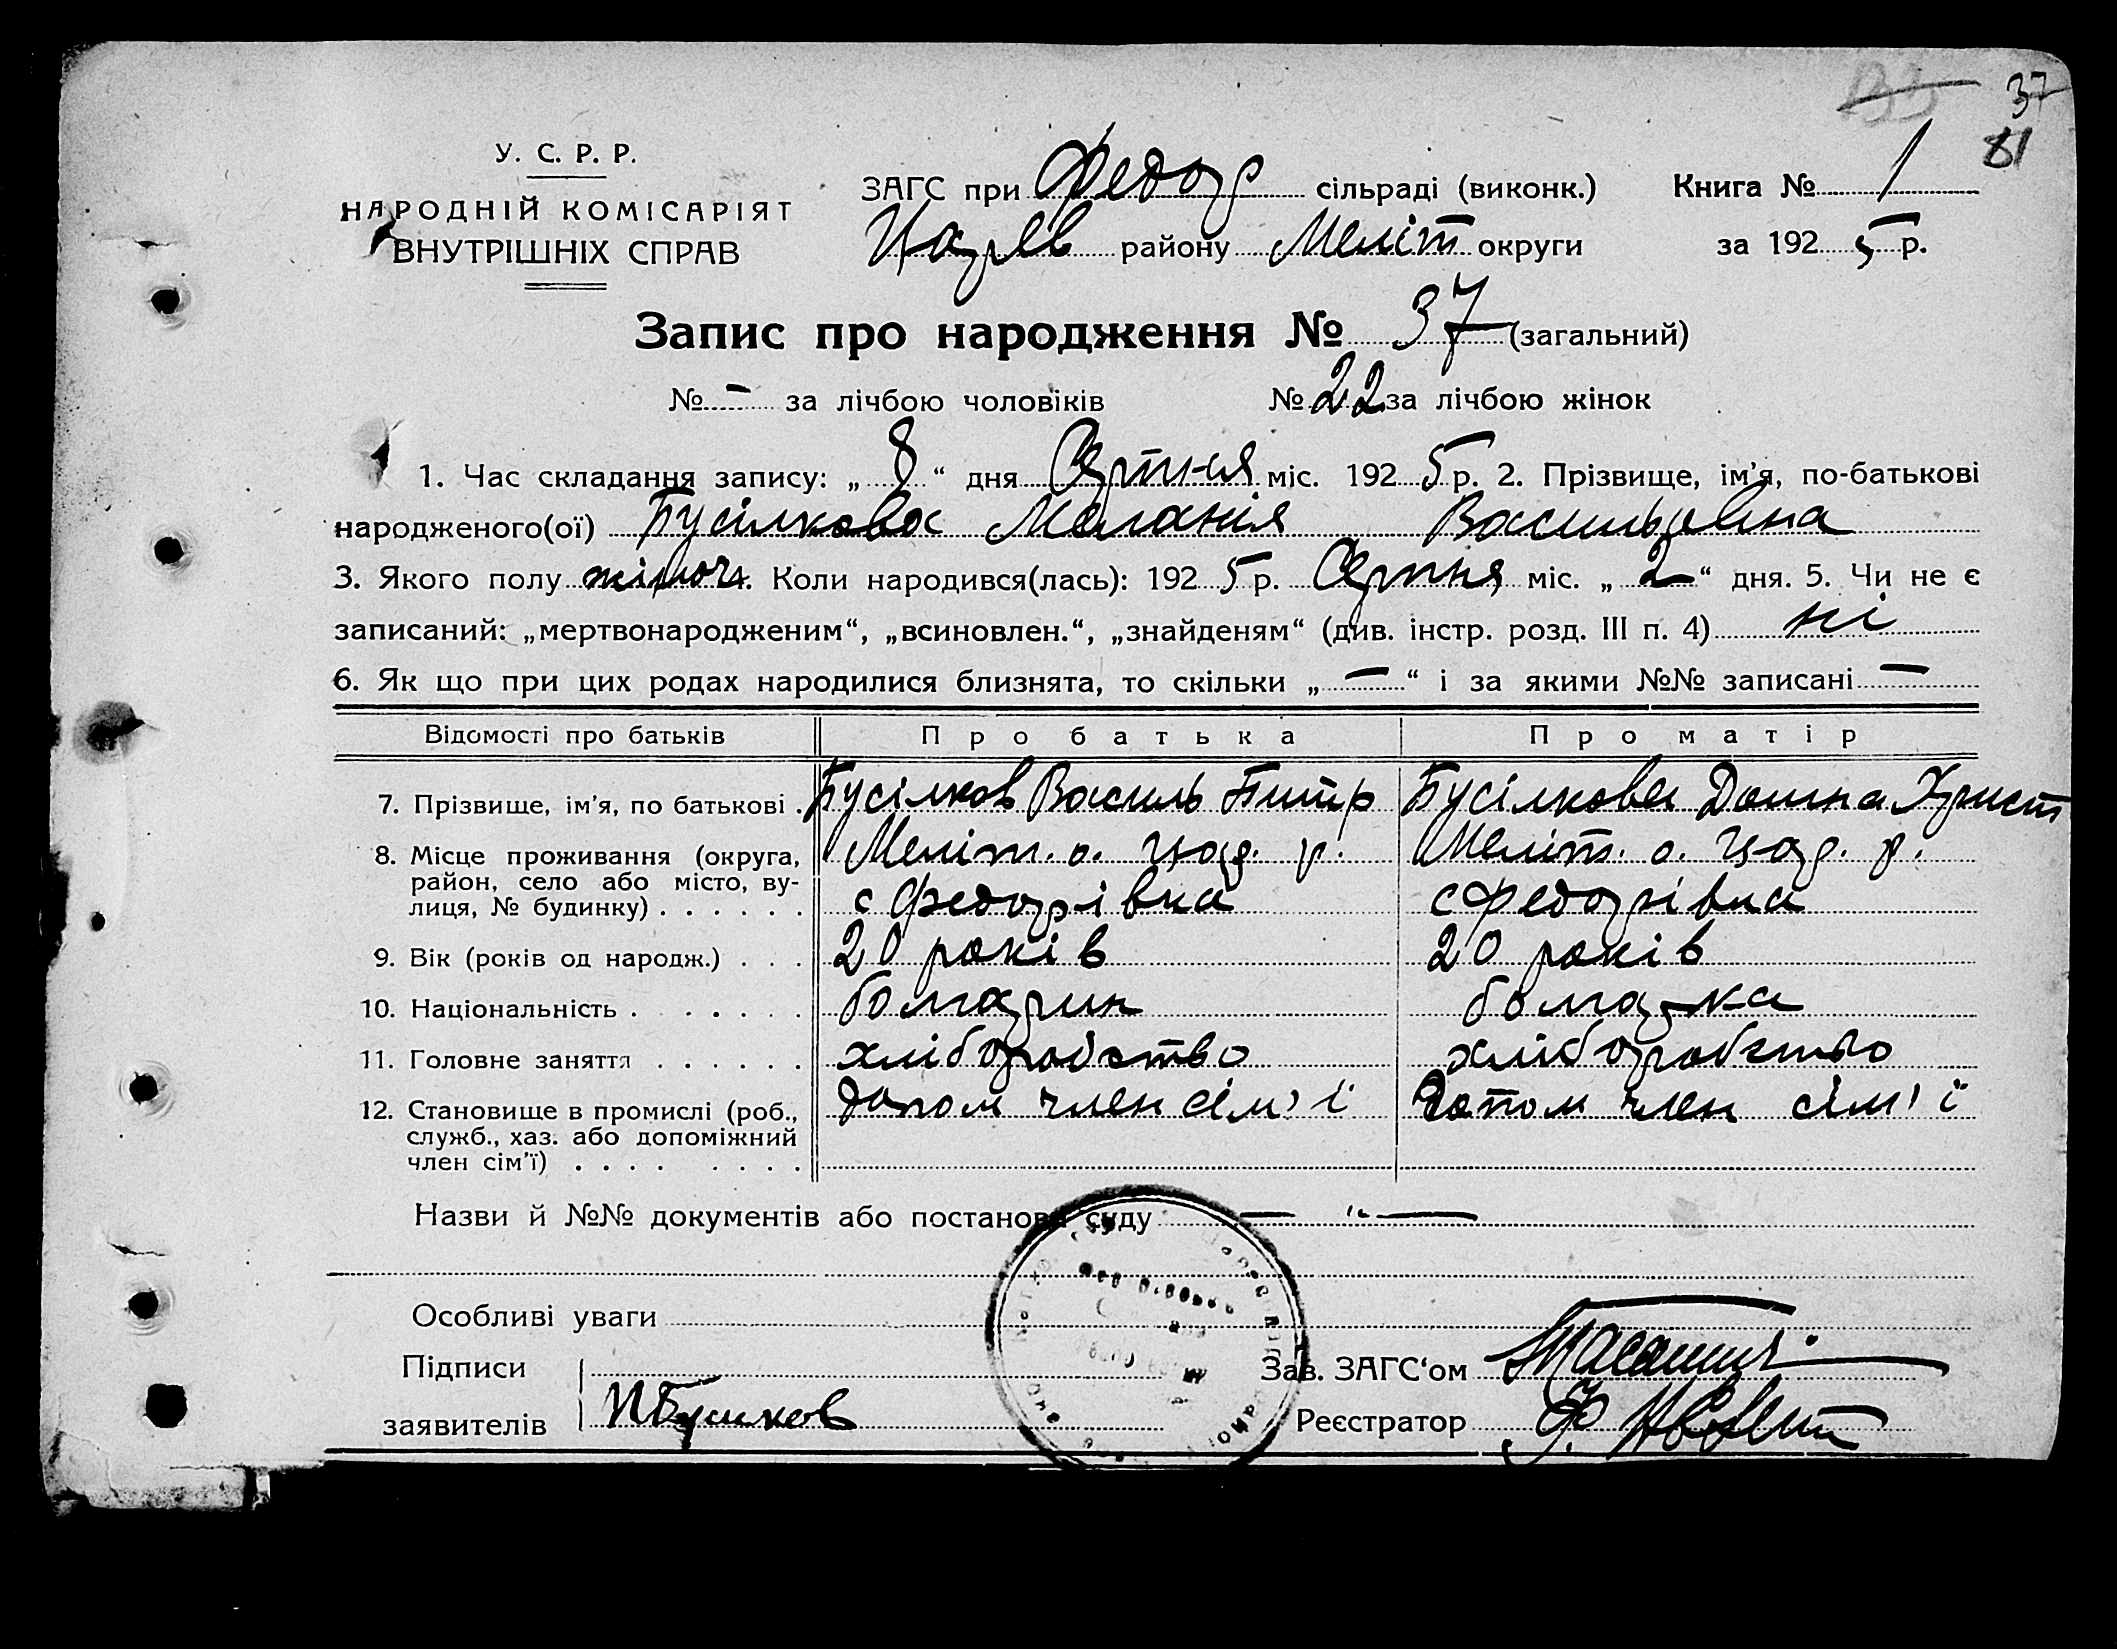 37
81
У. С. Р. Р.
НАРОДНІЙ КОМІСАРІЯТ
ВНУТРІШНІХ СПРАВ
ЗАГС при Федор сільраді (виконк.) Книга № 1
Цар ІВ району Меліт округи за 1925 р.
Запис про народження № 37 (загальний)
№ – за лічбою чоловіків № 22 за лічбою жінок
1. Час складання запису: „8“ дня Серпня міс. 1925 р. 2. Прізвище, ім’я, по-батькові
народженого(ої) Бусілкова Меланія Васильевна
3. Якого полу жіноч 4. Коли народився(лась): 1925 р. Серпня міс. „2“ дня. 5. Чи не є
записаний: „мертвонародженим“, „всиновлен.“, „знайденям“ (див. інстр. розд. III п. 4) ні
6. Як що при цих родах народилися близнята, то скільки „—“ і за якими №№ записані —
Відомості про батьків Про батька Про матір
7. Прізвище, ім’я, по батькові . Бусілков Василь Питр Бусілкова Домна Христ
8. Місце проживання (округа, район, село або місто, вулиця, № будинку) . . . . . . Меліт. о. Цар. р. Меліт. о. Цар. р.
с Федорівка с Федорівка
9. Вік (років од народж.) . . . 20 років 20 років
10. Національність . . . . . . . болгарин болгарка
11. Головне заняття . . . . . . хліборобство хліборобство
12. Становище в промислі (роб., служб., хаз. або допоміжний член сім’ї) . . . . . . . . допом член сім’ї допом член сім’ї
Назви й №№ документів або постанови суду — „ —
Особливі уваги
Підписи Зав. ЗАГС‘ом
заявителів Бусилков Реєстратор